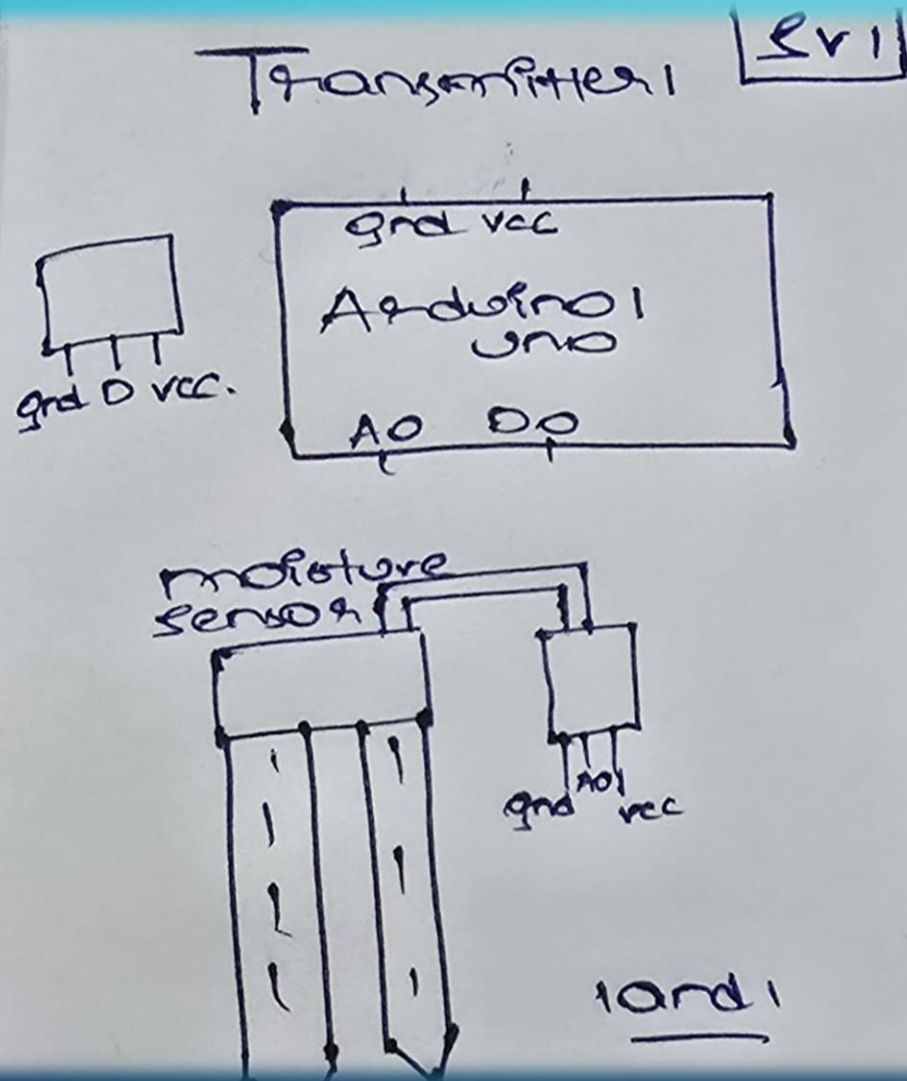 Transmitter 1
Sv 1
gnd vcc
Arduino 1
uno
gnd D vcc.
A0 D0
moisture
sensor
gnd A0 vcc
land 1